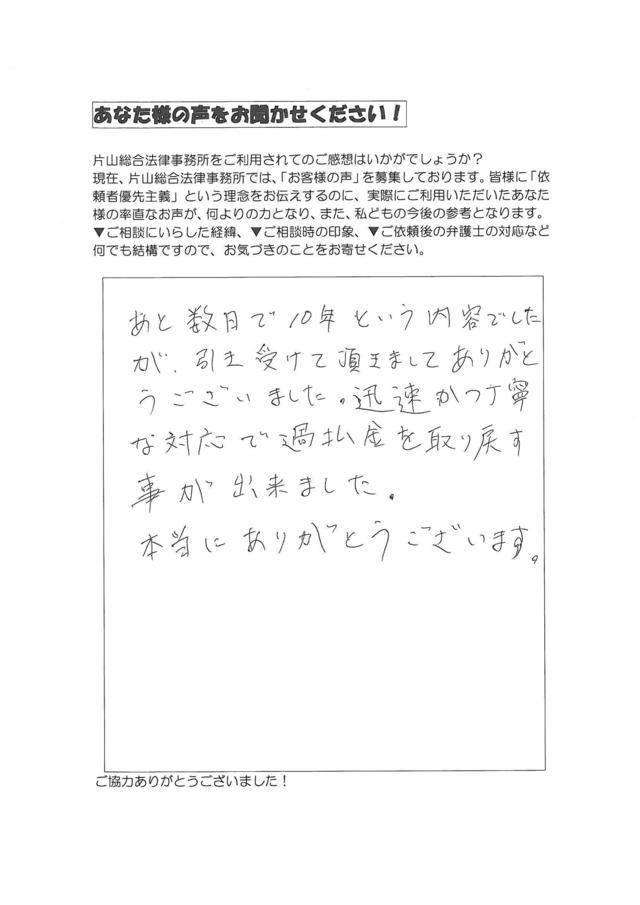 あなた様の声をお聞かせください！
片山総合法律事務所をご利用されてのご感想はいかがでしょうか？
現在、片山総合法律事務所では、「お客様の声」を募集しております。皆様に「依
頼者優先主義」という理念をお伝えするのに、実際にご利用いただいたあなた
様の率直なお声が、何よりの力となり、また、私どもの今後の参考となります。
▼ご相談にいらした経緯、▼ご相談時の印象、▼ご依頼後の弁護士の対応など
何でも結構ですので、お気づきのことをお寄せください。
あと数日で10年という内容でした
が、引き受けて頂きましてありがと
うございました。迅速かつ丁寧
な対応で過払金を取り戻す
事が出来ました。
本当にありがとうございます。
ご協力ありがとうございました！